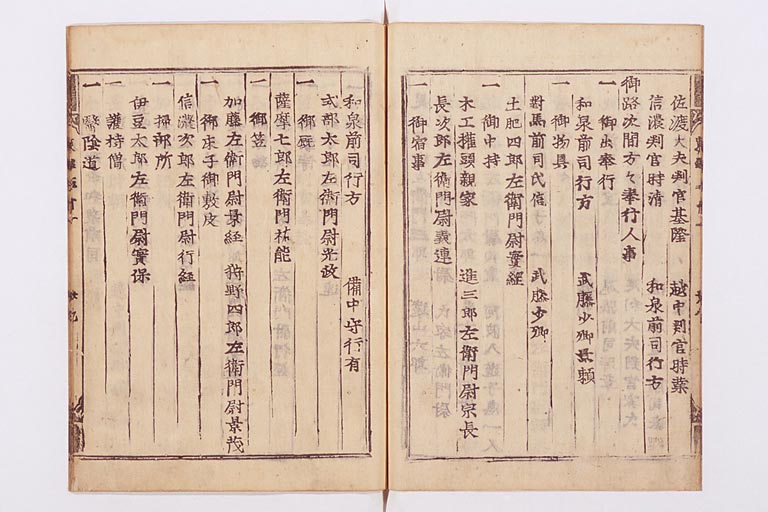 佐渡大夫判官基隆　越中判官時業
信濃判官時清　和泉前司行方
御路次間方々奉行人事
一 御出奉行
和泉前司行方　武藤少卿景頼
一 御物具
對馬前司氏　武藤少卿
土肥四郎左衛門尉實經
一 御中持
木工權頭親家　進三郎左衛門尉宗長
長次郎左衛門尉義連
一 御宿事
和泉前司行方　備中守行有
一
式部太郎左衛門尉光政
一 御厩
薩摩七郎左衛門尉祐能
一 御笠
加藤左衛門尉景經　狩野四郎左衛門尉景茂
一 御床子御敷皮
信濃次郎左衛門尉行經
一 掃部所
伊豆太郎左衛門尉實保
一 護持僧
一 醫陰道